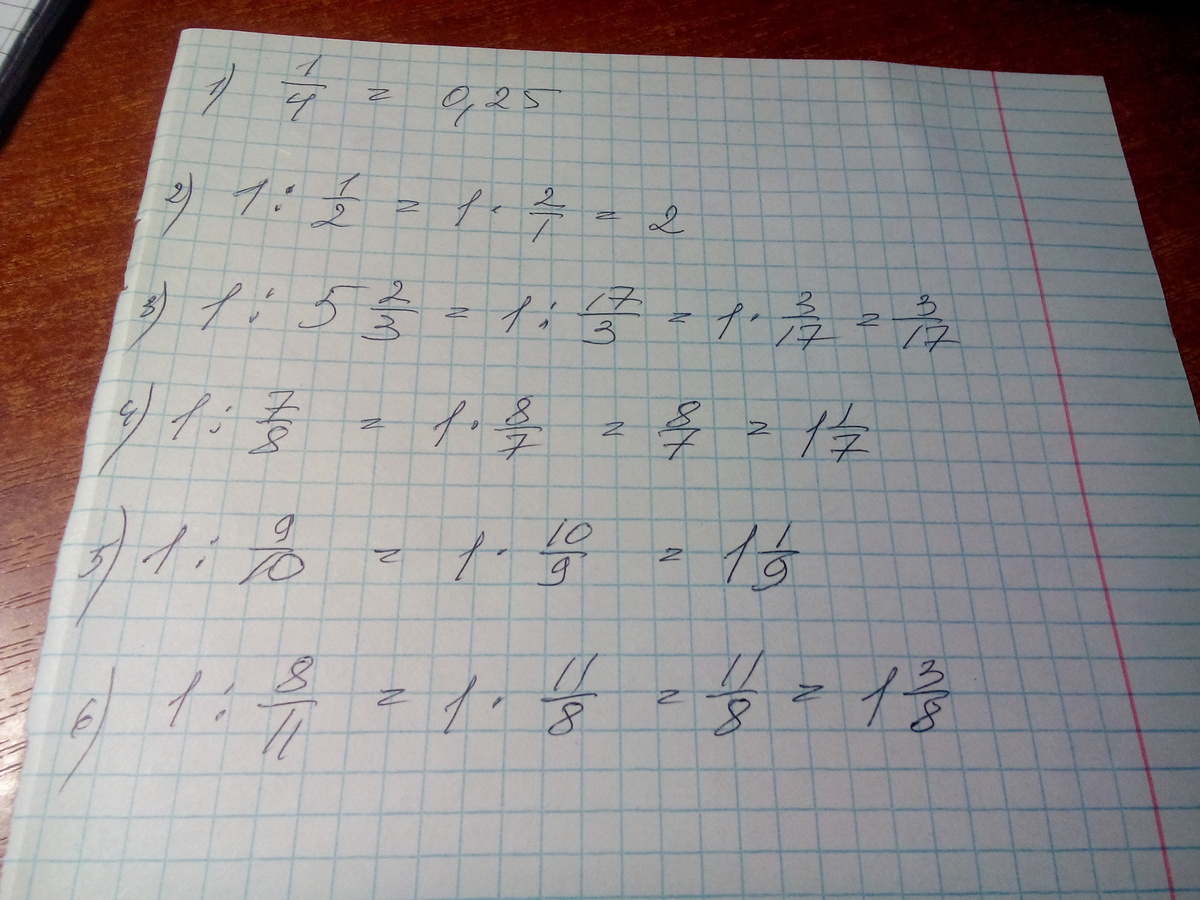 1) 1/4 = 0,25
2) 1 : 1/2 = 1 · 2/1 = 2
3) 1 : 5 2/3 = 1 : 17/3 = 1 · 3/17 = 3/17
4) 1 : 7/8 = 1 · 8/7 = 8/7 = 1 1/7
5) 1 : 9/10 = 1 · 10/9 = 1 1/9
6) 1 : 8/11 = 1 · 11/8 = 11/8 = 1 3/8